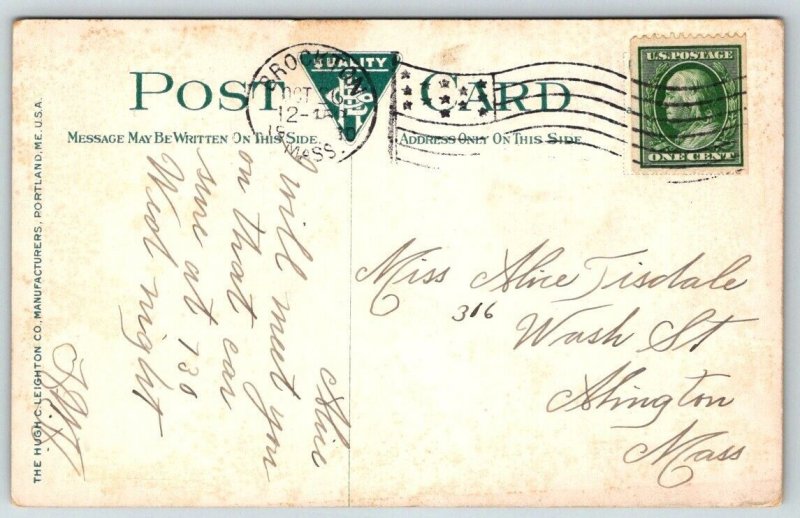 POST CARD
QUALITY
MESSAGE MAY BE WRITTEN ON THIS SIDE.
ADDRESS ONLY ON THIS SIDE
BROCKTON
OCT
12-
MASS.
U.S. POSTAGE
ONE CENT
THE HUGH C. LEIGHTON CO., MANUFACTURERS, PORTLAND, ME. U.S.A.
Alice
I will meet you
on that car
sure at 730
Wed night
Miss Alice Tisdale
316
Wash St
Abington
Mass